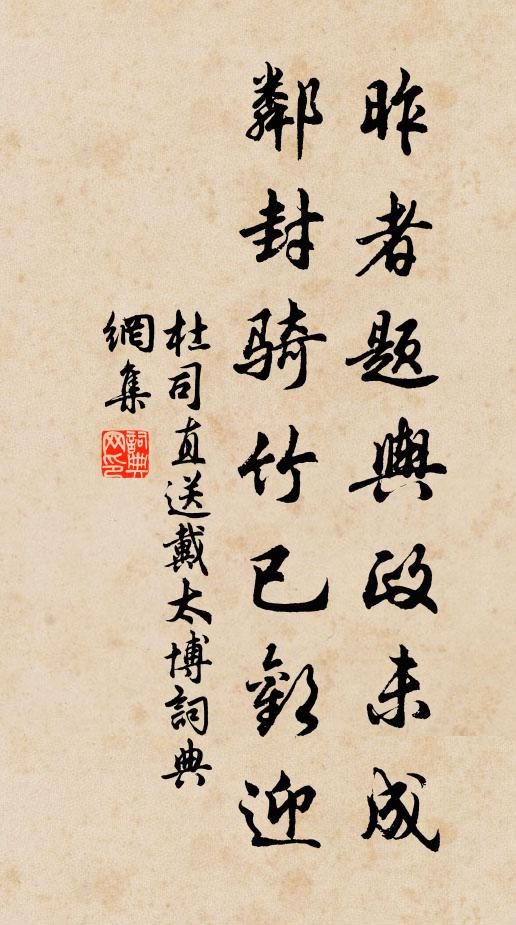 昨者題輿政未成
鄰封騎竹已歡迎
杜司直送戴太博詞典
網集
詞典
网印